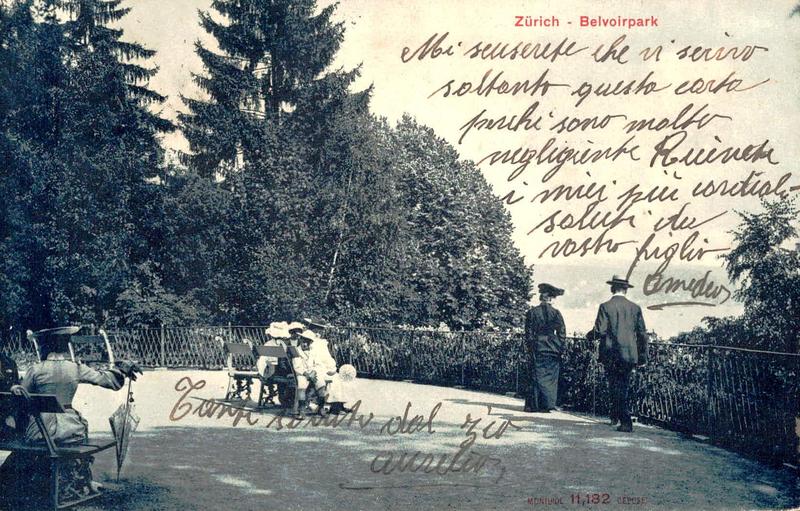 Zürich - Belvoirpark
Mi scuserete che vi scrivo
soltanto questa carta
perchi sono molto
negligiente Ricivete
i miei più cordial-
saluti da
vostro figlio
Amedeo
Tanti saluti dal zio
aurelio,
11,182 DEPOSE